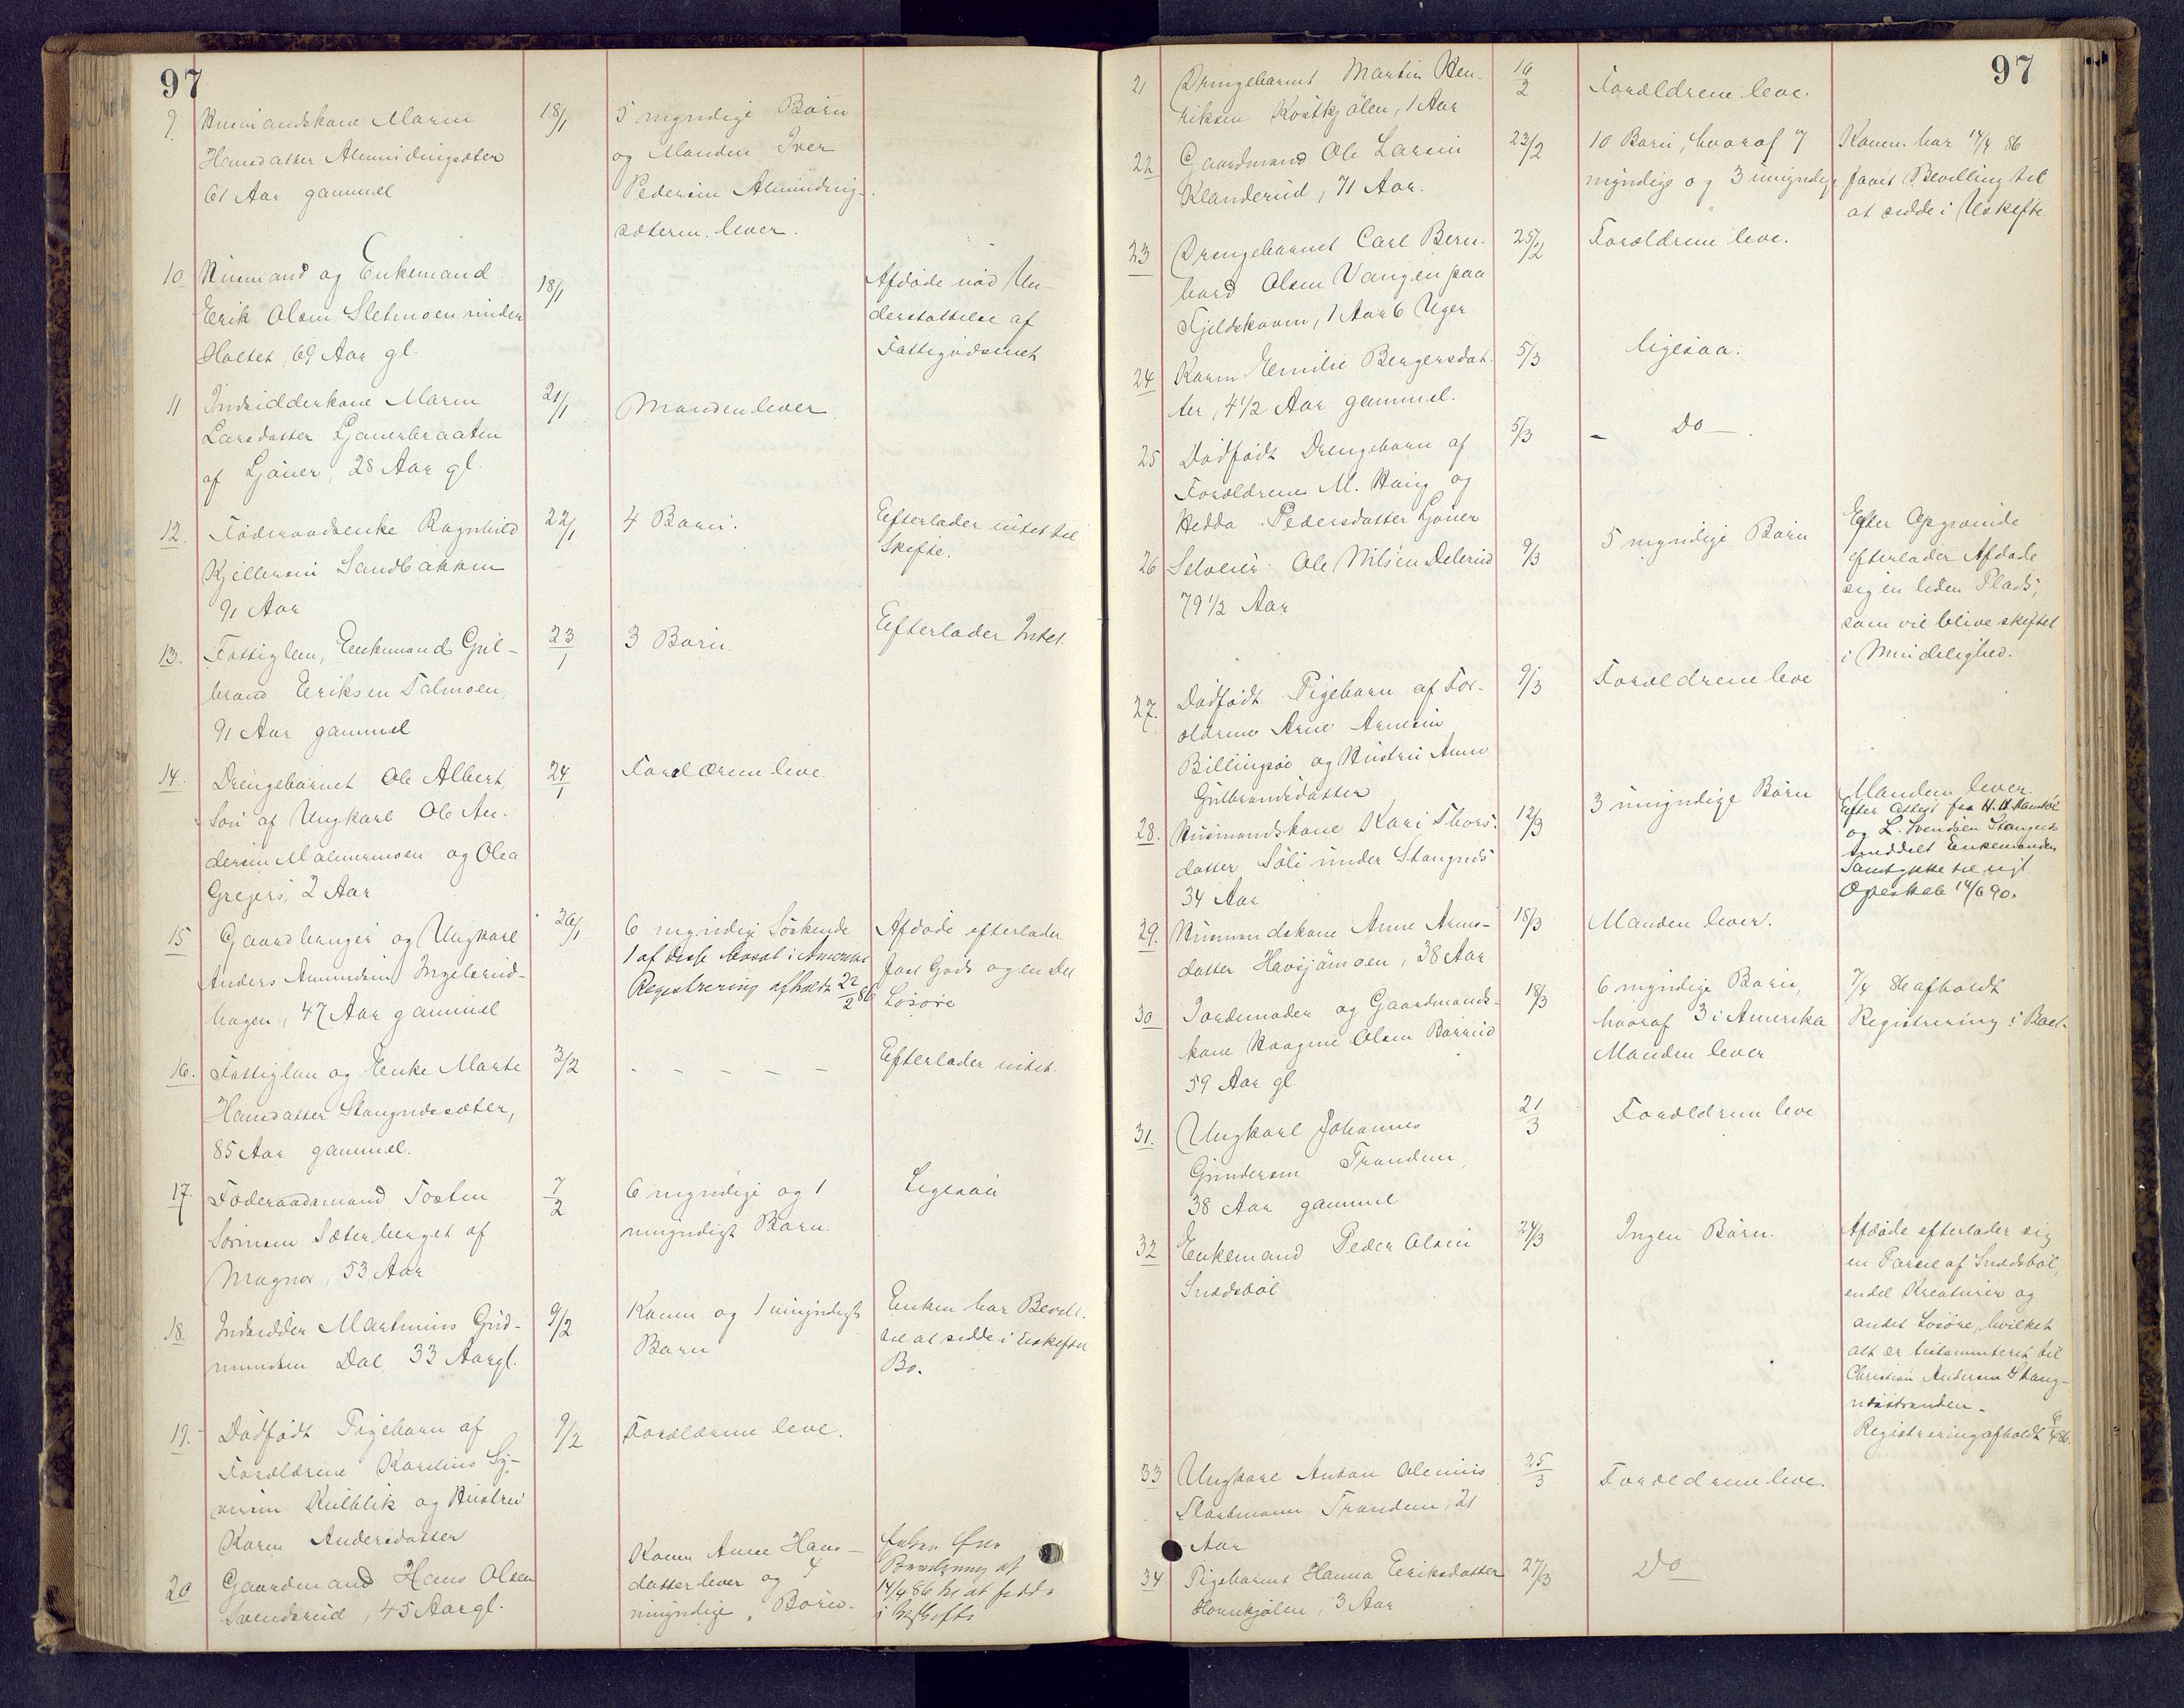 97
9. Husmandskone Maren 18/1 5 myndige Børn
Hansdatter Almindingsæter og Manden Iver
61 Aar gammel Pedersen Alminding-
sæteren lever.
10 Husmand og Enkemand 18/1 Afdøde nød Un-
Erik Olsen Sletmoen under derstøttelse af
Holtet, 69 Aar gl. Fattigvæsenet
11 Indsidderkone Maren 21/1 Manden lever
Larsdatter Gjauerbraaten
af Gjøuer, 28 Aar gl.
12. Føderaadsenke Ragnhild 22/1 4 Børn. Efterlader intet til
Kjellersen Sandbakken Skifte.
91 Aar
13. Fattiglem, Enkemand Gul- 23/1 3 Børn. Efterlader Intet.
brand Eriksen Talmoen,
91 Aar gammel
14. Drengebarnet Ole Albert 24/1 Forældrene leve.
Søn af Ungkarl Ole An-
dersen Malmermoen og Olea
Gregers, 2 Aar
15 Gaardbruger og Ungkarl 26/1 6 myndige Søskende Afdøde efterlader
Anders Amundsen Ingelsrud- 1 af disse bosat i Amerika fast Gods og en Del
hagen, 47 Aar gammel Registrering afholdt 22/2 86 Løsøre
16. Fattiglem og Enke Marte 3/2 - - - - - Efterlader intet.
Hansdatter Stangnessæter,
85 Aar gammel.
17. Føderaadsmand Tosten 7/2 6 myndige og 1 Ligesaa
Sørensen Sæterberget af umyndigt Barn.
Magnor, 53 Aar
18. Indsidder Martinius Gud- 9/2 Konen og 1 umyndigt Enken har Bevill.
mundsen Dal, 33 Aar gl. Barn til at sidde i uskiftet
Bo.
19. Dødfødt Pigebarn af 9/2 Forældrene leve.
Forældrene Karelius Sy-
versen Kulblik og Hustru
Karen Andersdatter
20 Gaardmand Hans Olsen Konen Anne Hans-
Svendsrud, 45 Aar gl. datter lever og 4 14/4 86 til at sidde
umyndige Børn. i Uskifte
97
21 Drengebarnet Martin Hen- 16/2 Forældrene leve.
riksen Kostkjølen, 1 Aar
22 Gaardmand Ole Larsen 23/2 10 Børn, hvoraf 7 Konen har 14/4 86
Klanderud, 71 Aar. myndige og 3 umyndige faaet Bevilling til
at sidde i Uskifte.
23 Drengebarnet Carl Bern- 25/2 Forældrene leve.
hard Olsen Vangen paa
Fjeldskoven, 1 Aar 6 Uger
24 Karen Emilie Bergersdat- 5/3 ligesaa.
ter, 4 1/2 Aar gammel.
25 Dødfødt Drengebarn af 5/3 - Do -
Forældrene M. Haug og
Hedda Pedersdatter Gjøuer
26 Selveier Ole Nilsen Delerud 9/3 5 myndige Børn Efter Opgivende
79 1/2 Aar efterlader Afdøde
sig en liden Plads,
som vil blive skiftet
i Mindelighed.
27. Dødfødt Pigebarn af For- 9/3 Forældrene leve
ældrene Arne Arnesen
Billingsøe og Hustru Anne
Gulbrandsdatter
28. Husmandskone Kari Thors- 12/3 3 umyndige Børn Manden lever.
datter Søli under Stangnes Efter Attest fra
34 Aar og L. Svendsen Stangnes
meddelt Enkemanden
Samtykke til nyt
Ægteskab 14/6 90.
29. Husmandskone Anne Arne- 18/3 Manden lever.
datter Havsjømoen, 38 Aar
30 Jordemoder og Gaardmands- 18/3 6 myndige Børn, 7/4 86 afholdt
kone Kaagine Olsen Børrud hvoraf 3 i Amerika Registrering i Boet.
59 Aar gl. Manden lever
31. Ungkarl Johannes 21/3 Forældrene leve
Gundersen Trandem,
38 Aar gammel
32 Enkemand Peder Olsen 24/3 Ingen Børn. Afdøde efterlader sig
Snedsbøl en Parsel af Snedsbøl,
endel Kreaturer og
andet Løsøre, hvilket
alt er testamenteret til
Christian Andersen Stang-
nesstranden.
Registrering afholdt 6/4 86.
33 Ungkarl Anton Olenius 25/3 Forældrene leve.
Trandem, 21
Aar
34 Pigebarnet Hanna Eriksdatter 27/3 Do
Hornkjølen, 3 Aar